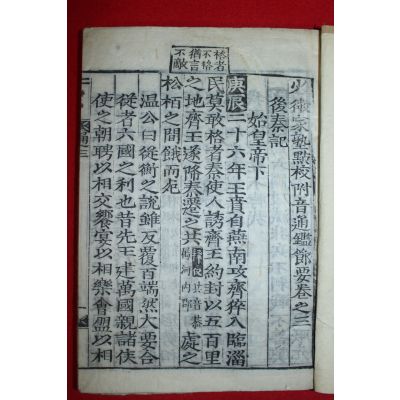 格者
不格
猶言
不敵
少微家塾點校附音通鑑節要卷之三
後秦記
始皇帝下
庚辰二十六年王賁自燕南攻齊猝入臨淄
民莫敢格者秦使人誘齊王約封以五百里
之地齊王遂降秦遷之共音恭河內郡處之
松栢之間餓而死
温公曰從衡之說雖反覆百端然大要合
從者六國之利也昔先王建萬國親諸侯
使之朝聘以相交饗宴以相樂會盟以相